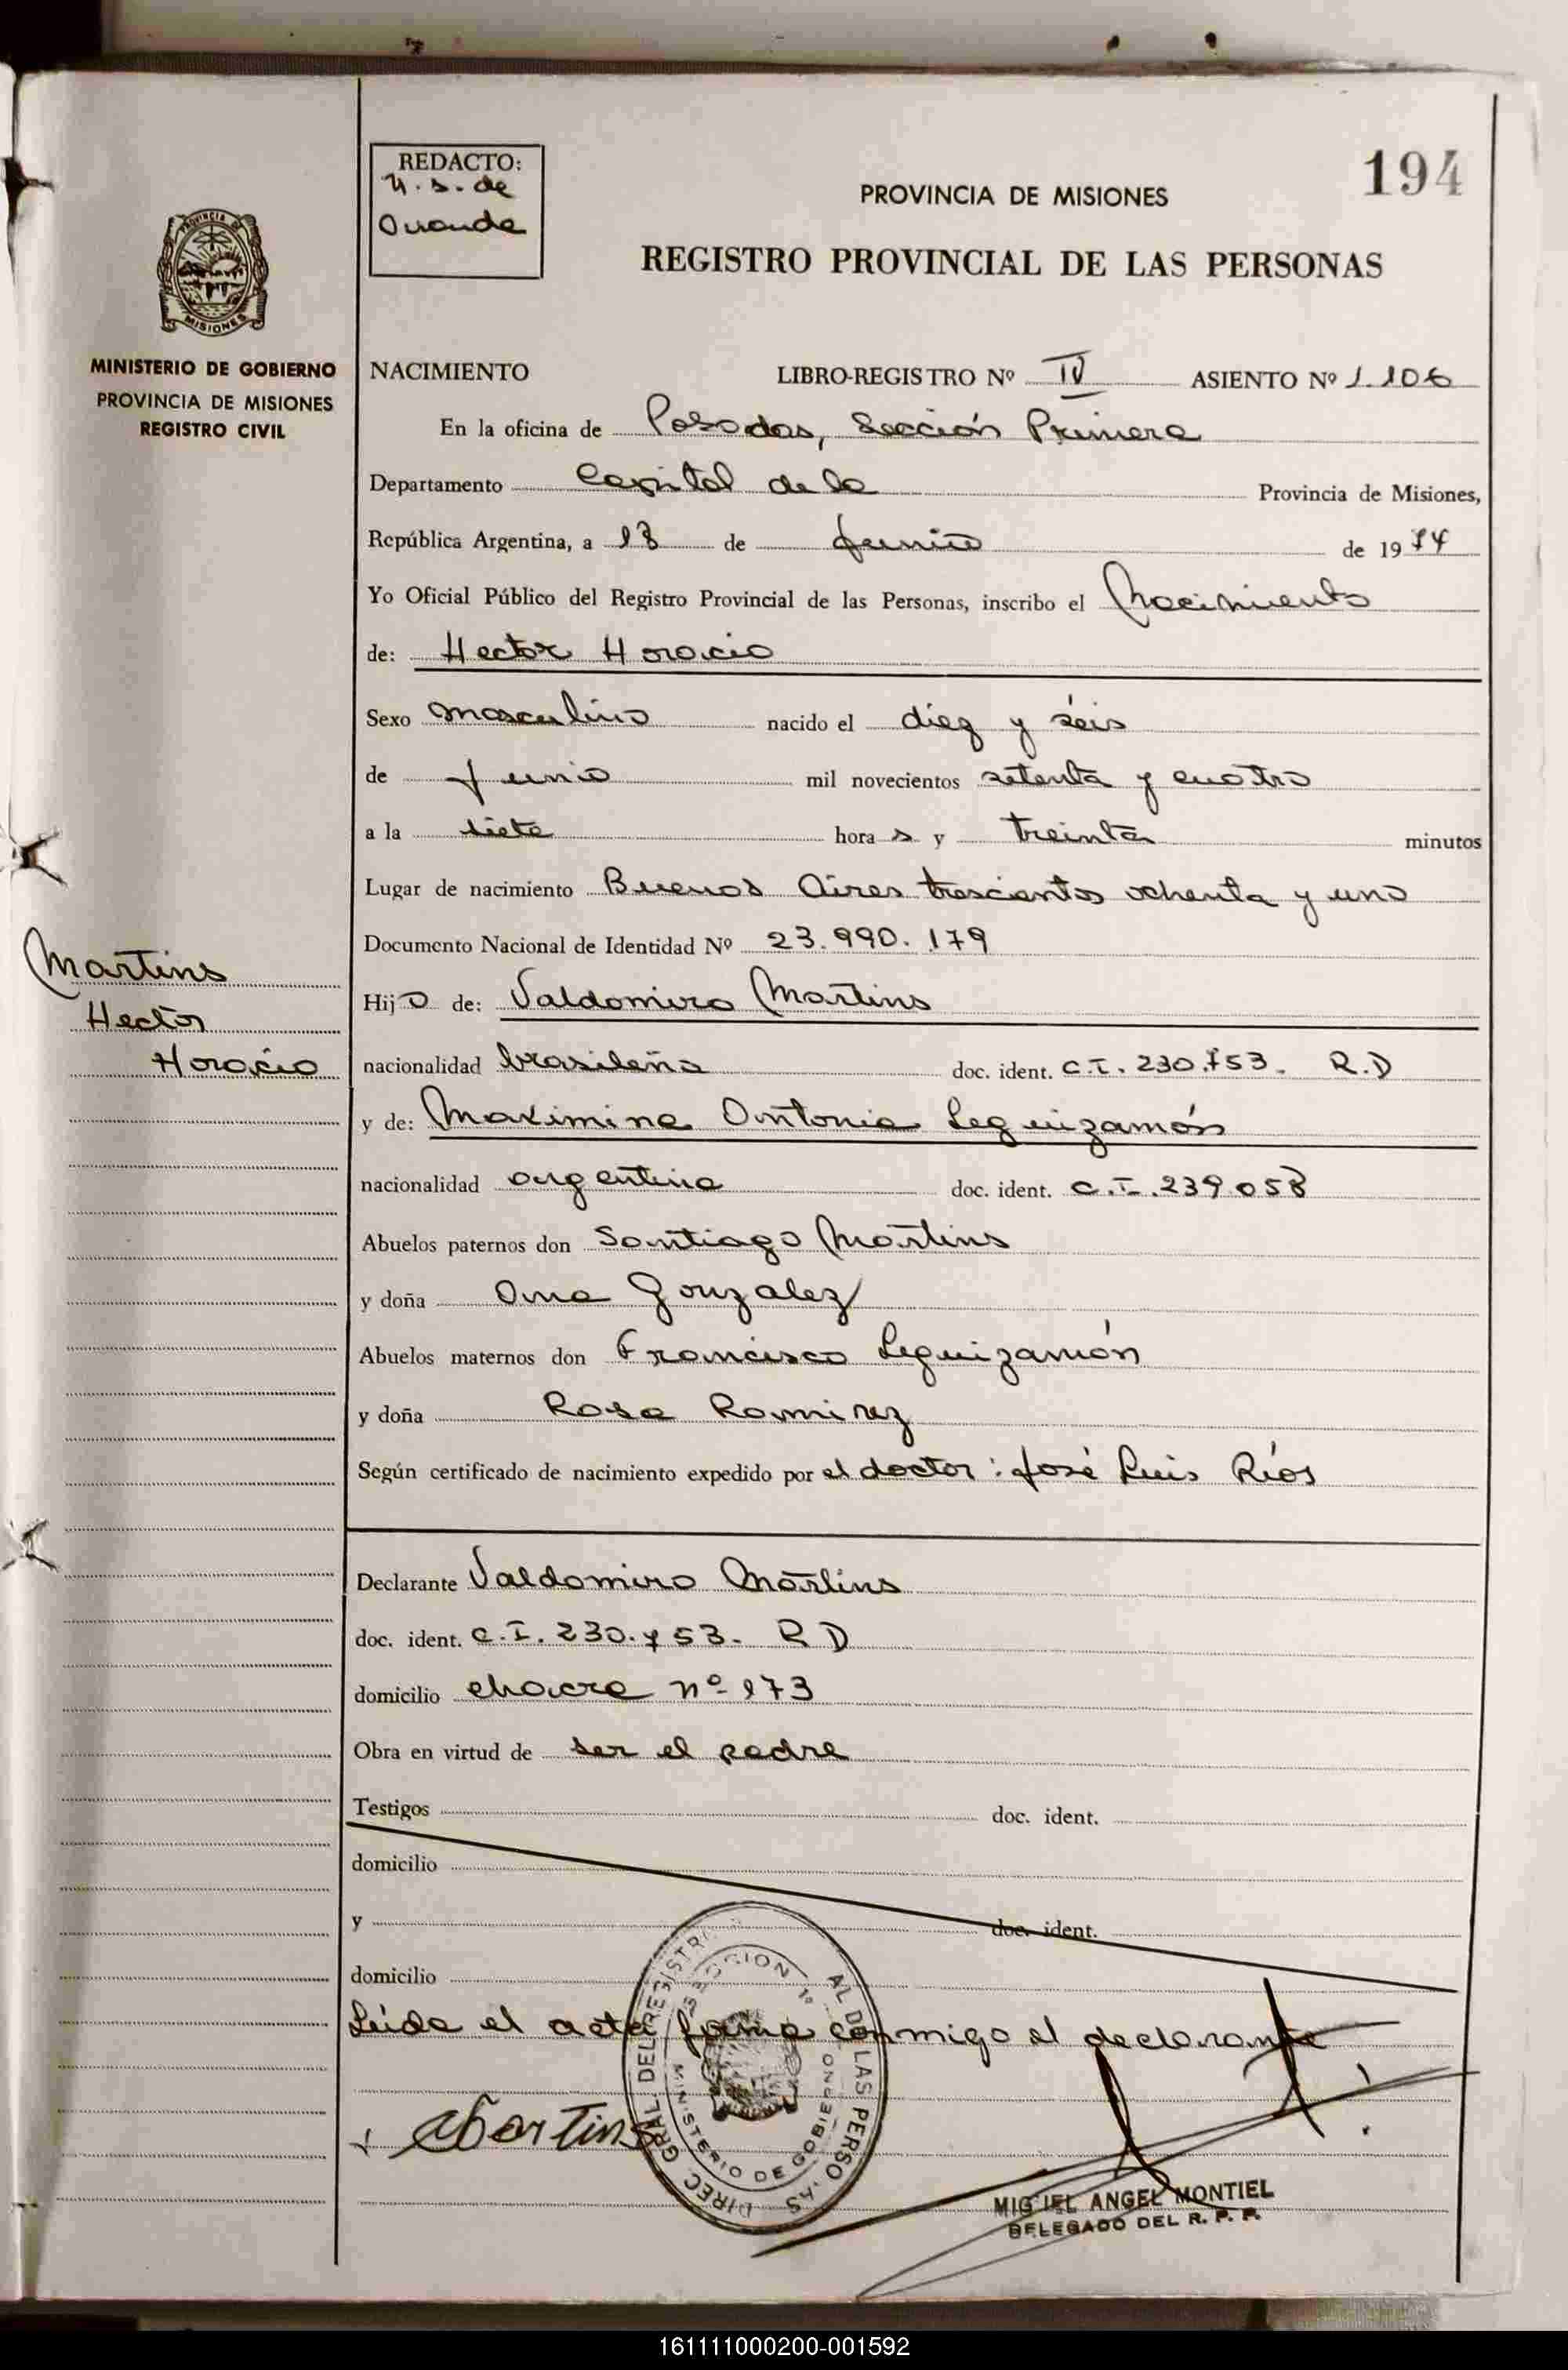 194
REDACTO:
PROVINCIA DE MISIONES
REGISTRO PROVINCIAL DE LAS PERSONAS
PROVINCIA DE
MISIONES
MINISTERIO DE GOBIERNO
PROVINCIA DE MISIONES
REGISTRO CIVIL
NACIMIENTO LIBRO-REGISTRO Nº IV ASIENTO Nº 1.106
En la oficina de Posadas, Sección Primera
Departamento Capital de la Provincia de Misiones,
República Argentina, a 18 de junio de 1974
Yo Oficial Público del Registro Provincial de las Personas, inscribo el Nacimiento
de: Hector Horacio
Sexo masculino nacido el diez y séis
de junio mil novecientos setenta y cuatro
a la siete hora s y treinta minutos
Lugar de nacimiento Buenos Aires trescientos ochenta y uno
Documento Nacional de Identidad Nº 23.990.179
Martins
Hector
Horacio
Hij o de: Valdomiro Martins
nacionalidad brasileña doc. ident. C.I. 230.753. R.D
y de: Maximina Antonia Leguizamón
nacionalidad argentina doc. ident. C.I. 239.058
Abuelos paternos don Santiago Martins
y doña Ana Gonzalez
Abuelos maternos don Francisco Leguizamón
y doña Rosa Ramirez
Según certificado de nacimiento expedido por el doctor: José Luis Ríos
Declarante Valdomiro Martins
doc. ident. C.I. 230.753. R D
domicilio chacra nº 173
Obra en virtud de ser el padre
Testigos doc. ident.
domicilio
y doc. ident.
domicilio
Leída el acta firma conmigo el declarante
Martins
DIREC. GRAL. DEL REGISTR AL DE LAS PERSO AS
SECCION 1º
MINISTERIO DE GOBIERNO
MIGUEL ANGEL MONTIEL
DELEGADO DEL R. P. P.
161111000200-001592